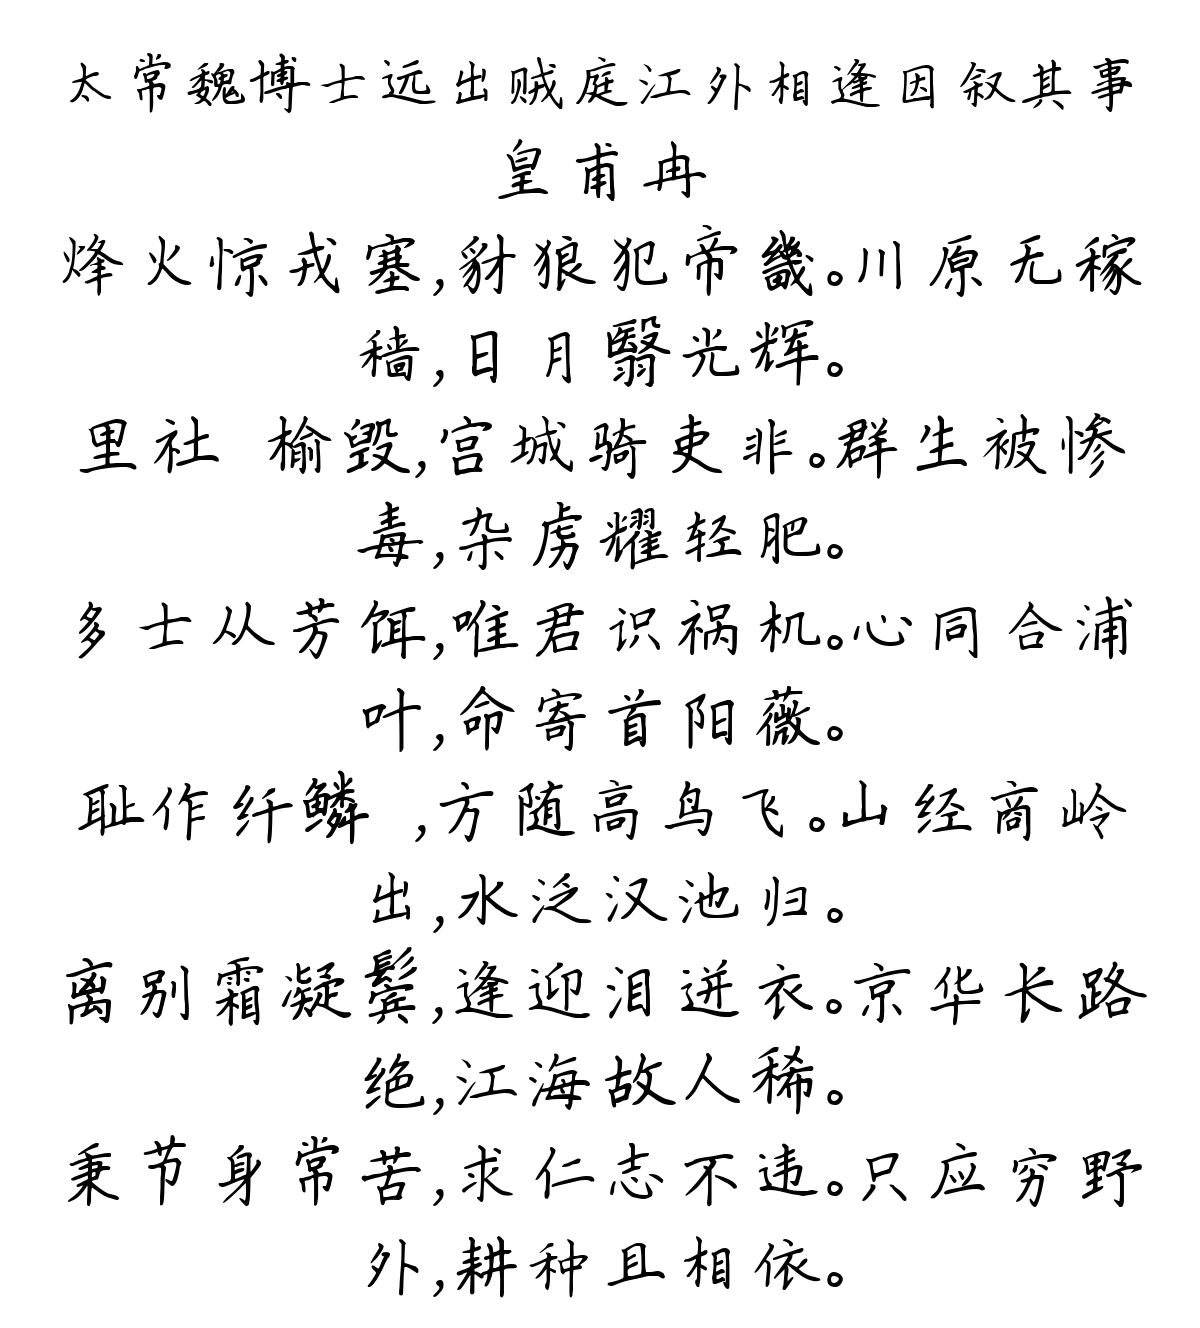 太常魏博士远出贼庭江外相逢因叙其事
皇甫冉
烽火惊戎塞,豺狼犯帝畿。川原无稼
穑,日月翳光辉。
里社 榆毁,宫城骑吏非。群生被惨
毒,杂虏耀轻肥。
多士从芳饵,唯君识祸机。心同合浦
叶,命寄首阳薇。
耻作纤鳞 ,方随高鸟飞。山经商岭
出,水泛汉池归。
离别霜凝鬓,逢迎泪迸衣。京华长路
绝,江海故人稀。
秉节身常苦,求仁志不违。只应穷野
外,耕种且相依。